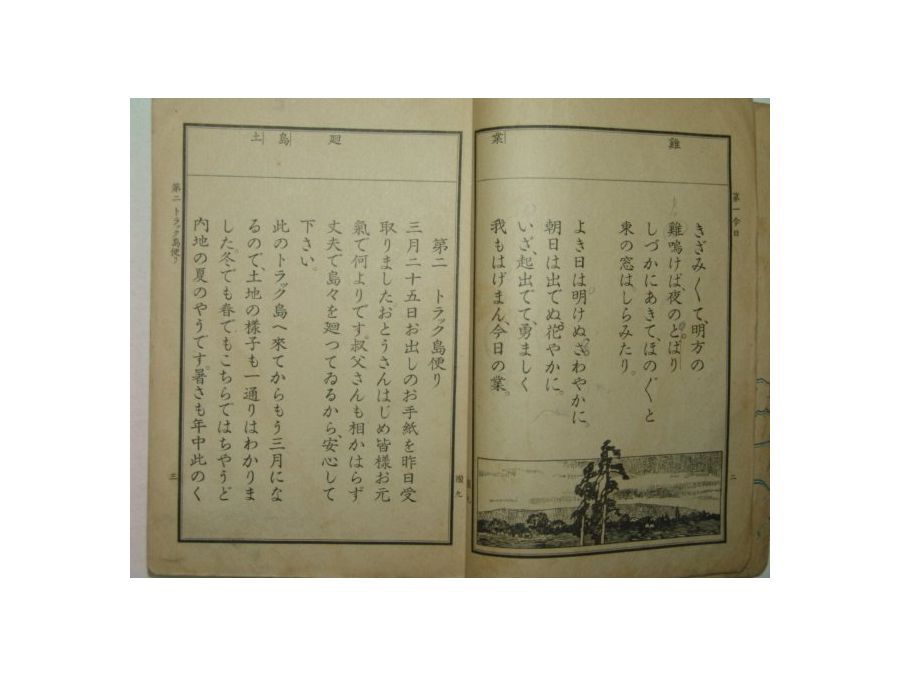 第一 今日
二
雞
業
きざみ〱て、明方の
雞鳴けば、夜のとばり
しづかにあきて、ほの〲と
東の窓はしらみたり。
よき日は明けぬ、さわやかに。
朝日は出でぬ、花やかに。
いざ、起出でて、勇ましく
我もはげまん、今日の業。
廻
島
土
第二 トラック島便り
三月二十五日お出しのお手紙を昨日受
取りました。おとうさんはじめ皆様お元
氣で何よりです。叔父さんも相かはらず
丈夫で島々を廻つてゐるから、安心して
下さい。
此のトラック島へ來てからもう三月にな
るので、土地の樣子も一通りはわかりま
した。冬でも春でも、こちらではちやうど
内地の夏のやうです。暑さも年中此のく
第二 トラック島便り
三